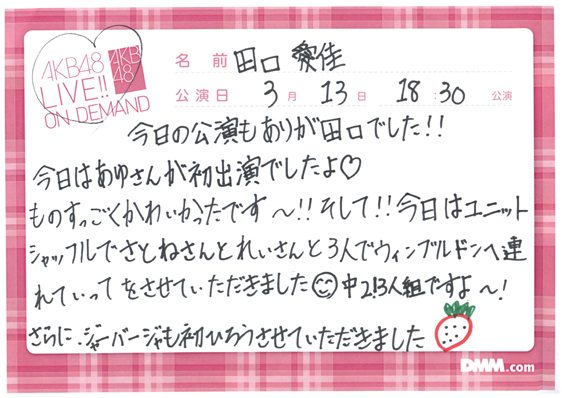 AKB48
LIVE!!
ON DEMAND
AKB
48
名前 田口 愛佳
公演日 3月 13日 18:30 公演
今日の公演もありが田口でした!!
今日はあゆさんが初出演でしたよ♡
ものすっごくかわいかったです〜!! そして!! 今日はユニット
シャッフルでさとねさんとれいさんと3人でウィンブルドンへ連
れていってをさせていただきました😊中2!3人組ですよ〜!
さらに、ジャーバージャも初ひろうさせていただきました
DMM.com